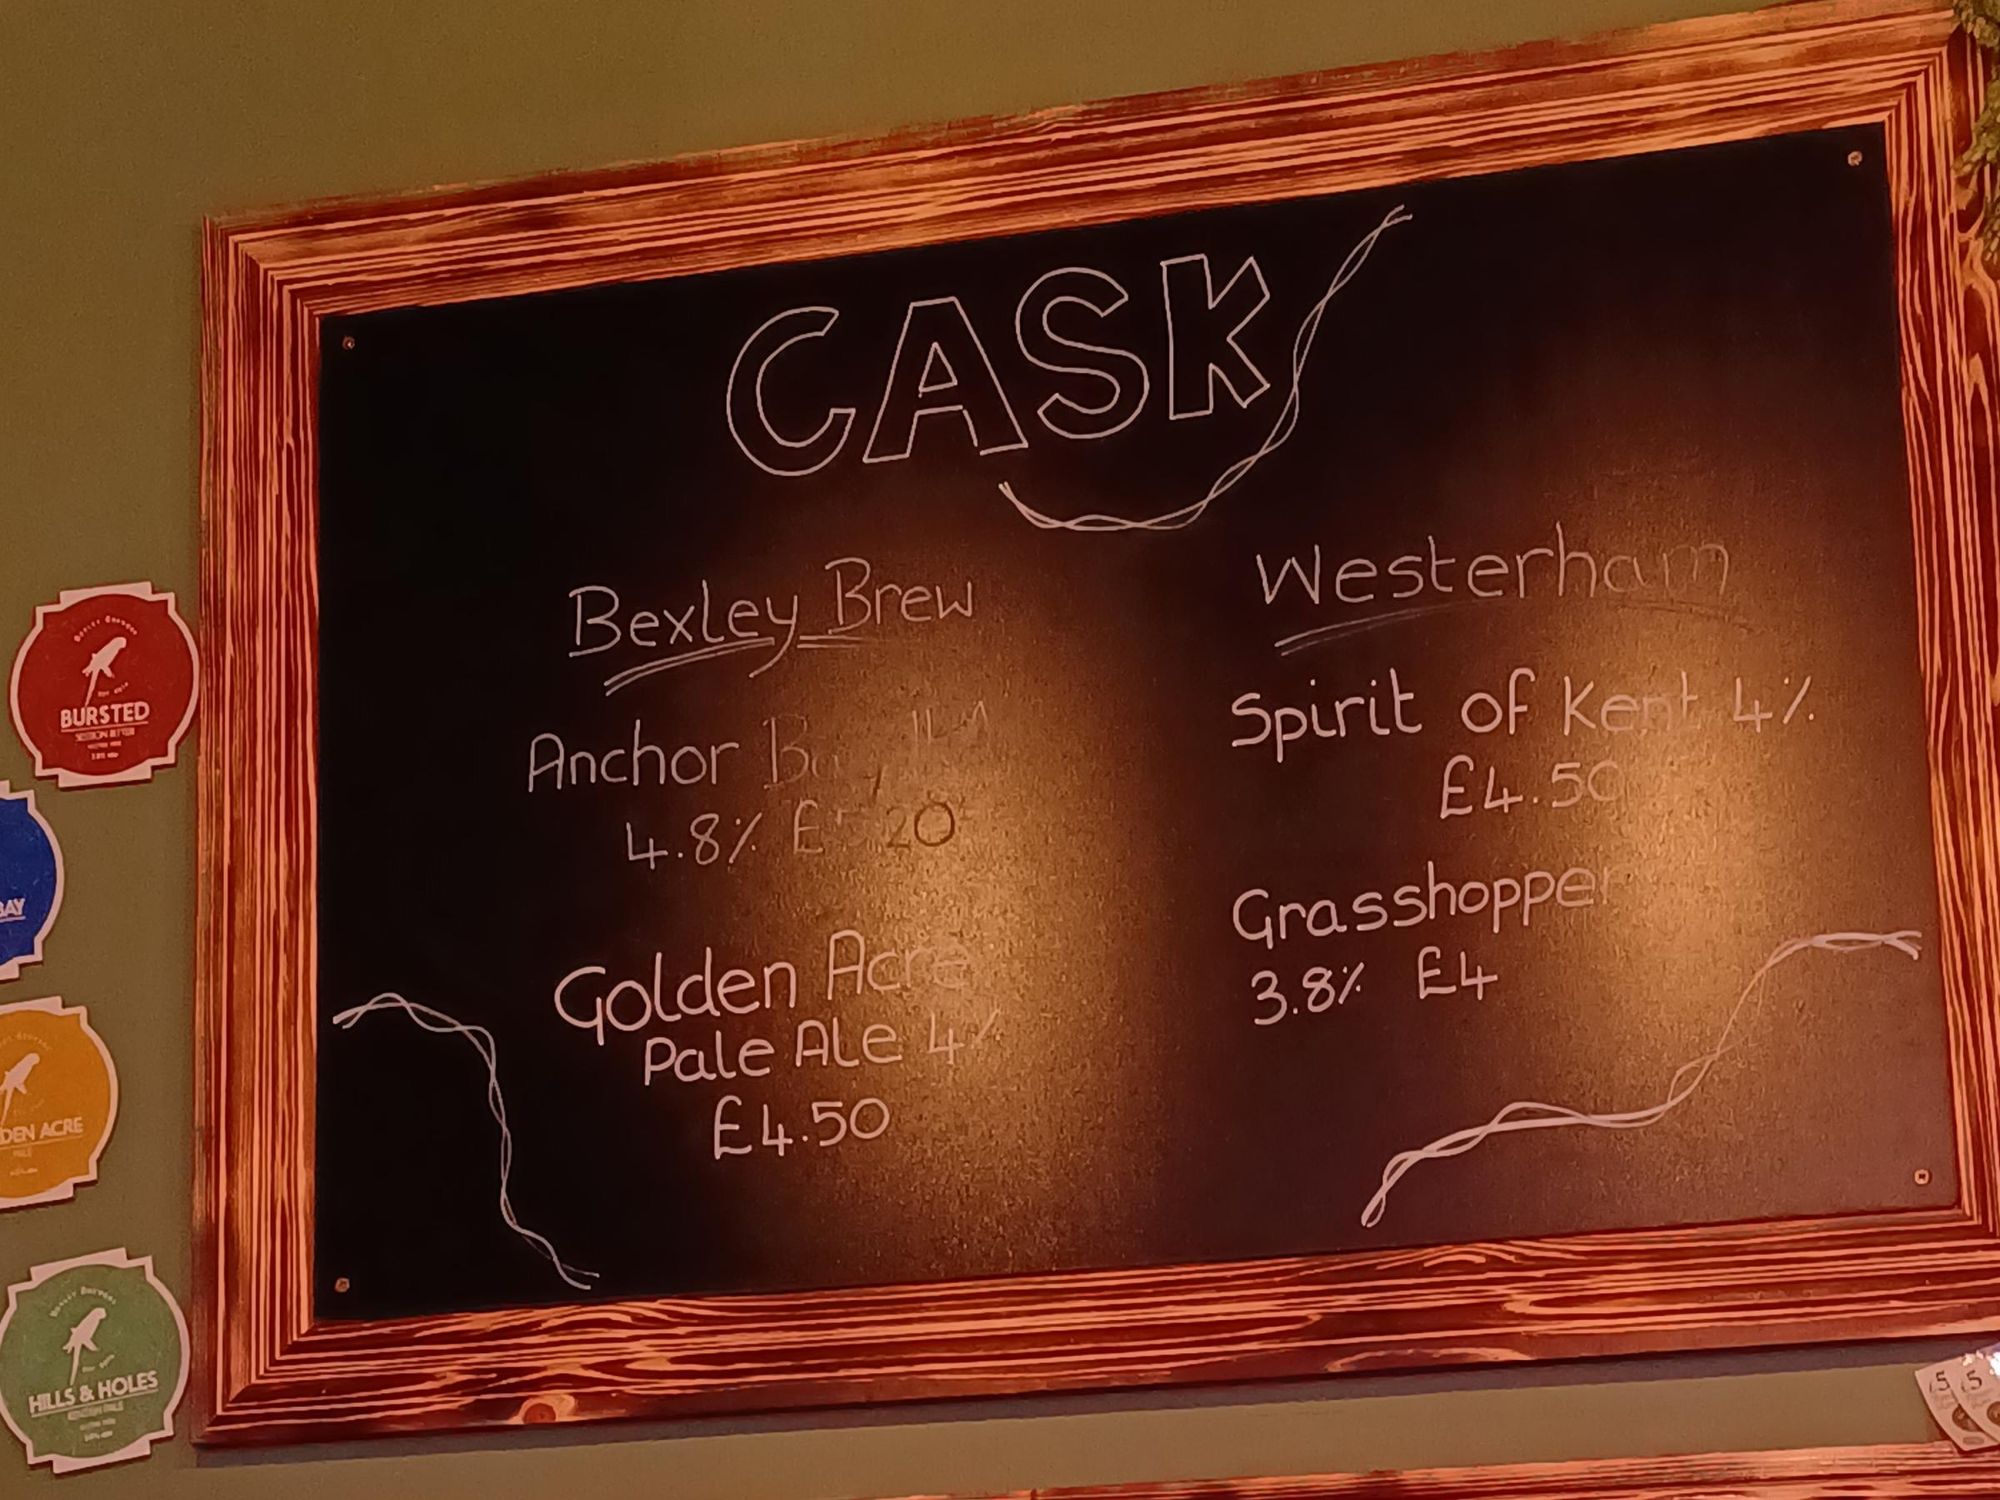 CASK
Bexley Brew
Anchor
4.8% £5.20
Golden Acre
Pale Ale 4%
£4.50
Westerham
Spirit of Kent 4%
£4.50
Grasshopper
3.8% £4
BURSTED
SESSION BITTER
BAY
DEN ACRE
PALE
HILLS & HOLES
KENTISH PALE
£5
£5